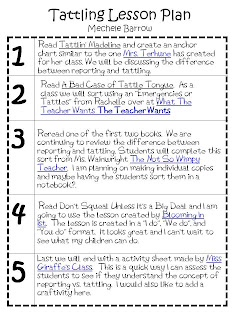 Tattling Lesson Plan
Mechele Barrow
1
Read Tattlin' Madeline and create an anchor
chart similar to the one Mrs. Terhune has created
for her class. We will be discussing the difference
between reporting and tattling.
2
Read A Bad Case of Tattle Tongue. As a
class we will sort using an "Emergencies or
Tattles" from Rachelle over at What The
Teacher Wants The TeacherWants.
3
Reread one of the first two books. We are
continuing to review the difference between
reporting and tattling. Students will complete this
sort from Ms. Wainwright, The Not So Wimpy
Teacher. I am planning on making individual copies
and maybe having the students sort them in a
notebook?.
4
Read Don't Squeal Unless It's a Big Deal and I am
going to use the lesson created by Blooming in
1st. The lesson is created in a "I do", "We do", and
"You do" format. It looks great and I can't wait to
see what my children can do.
5
Last we will end with a activity sheet made by Miss
Giraffe's Class. This is a quick way I can assess the
students to see if they understand the concept
of reporting vs. tattling. I would also like to add a
craftivity here.